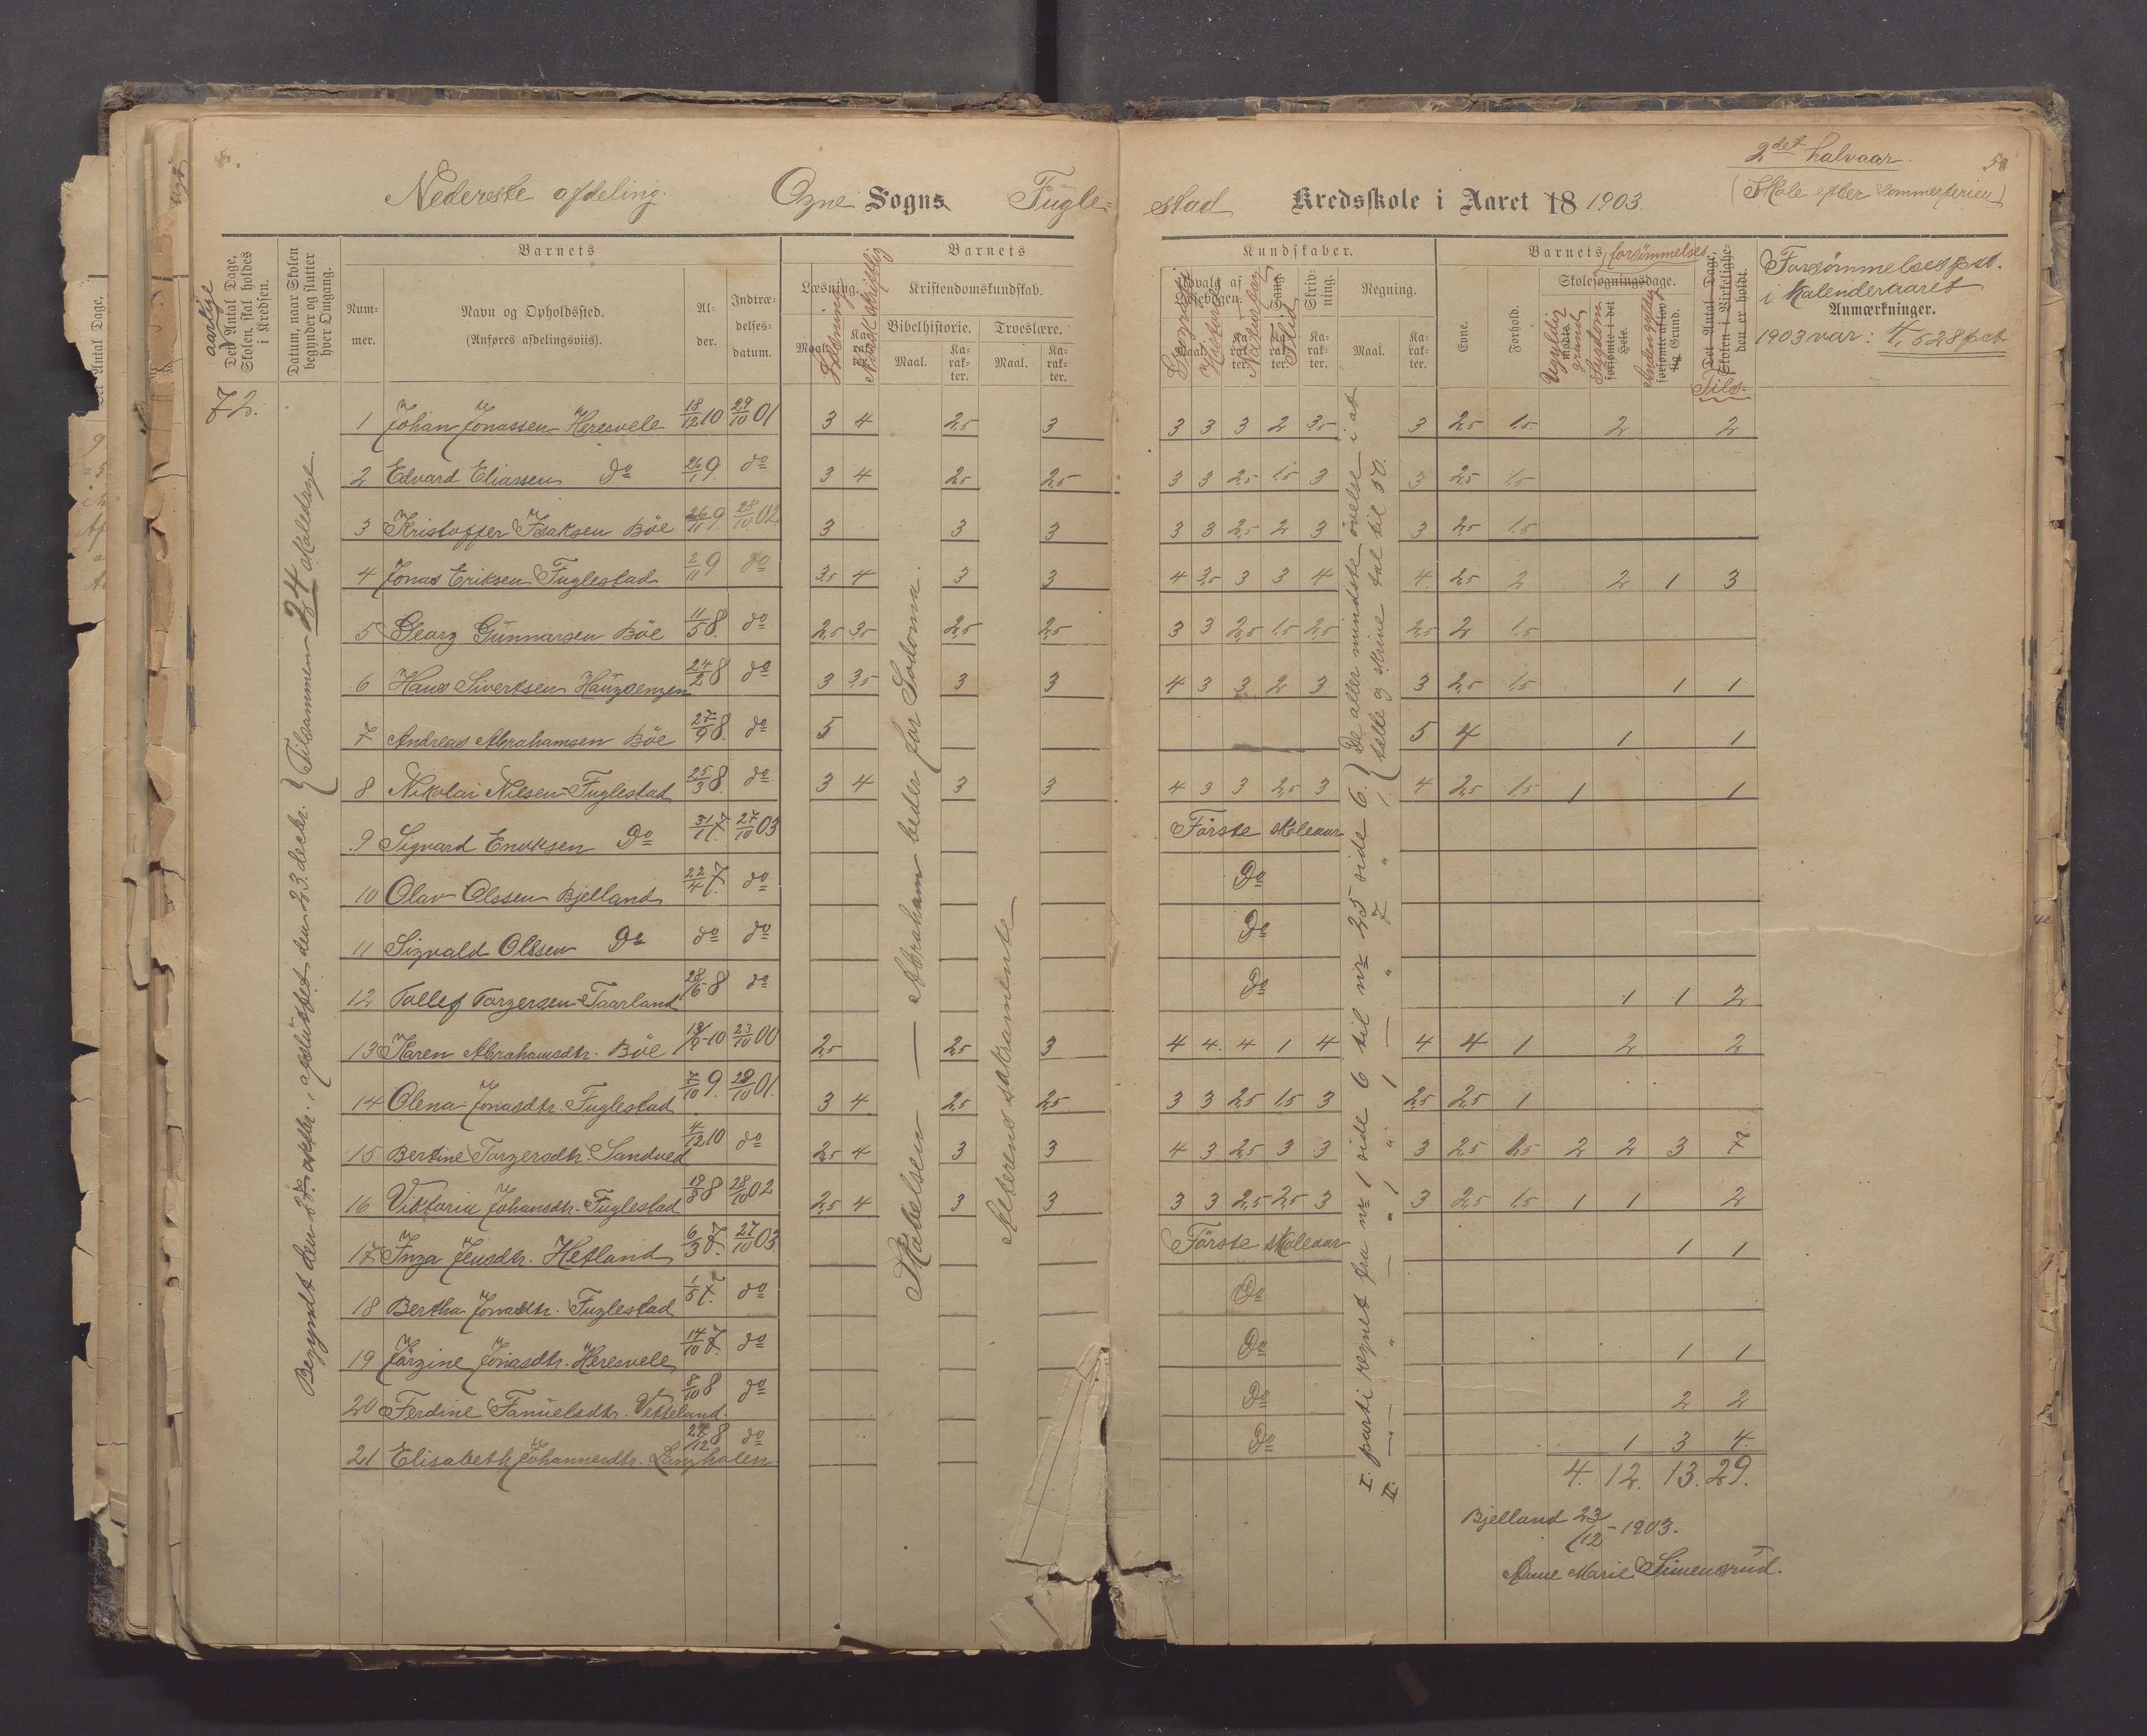 2det halvaar. 58
Nederste afdeling. Ogne Sogns Fugle= stad Kredsskole i Aaret 18 1903. (Skole efter Sommerferien)
aarlige
Det Antal Dage, Skolen skal holdes i Kredsen.
Datum, naar Skolen begynder og slutter hver Omgang.
Barnets
Nummer.
Navn og Opholdssted.
(Anføres afdelingsviis).
Alder.
Indtrædelsesdatum.
Barnets
Læsning.
Kristendomskundskab.
Bibelhistorie. Troeslære.
Maal. Karakter. Maal. Karakter.
Kundskaber.
Udvalg af Læsebogen.
Geografi
Historie
Sang.
Flid
Skrivning.
Regning.
Maal. Karakter.
Barnets forsømmelses
Evne.
Forhold.
Skolesøgningsdage.
Ugyldig grund
Sygdom
forsømte i det Hele.
Anden gyldig
forsømte af lovlig Grund.
Det Antal Dage, Skolen i Virkeligheden er holdt.
Tils.
Forsømmelsespct.
i Kalenderaaret
Anmærkninger.
1903 var: 4,528 pct.
72.
Begyndt den 27. oktbr., afsluttet den 23. decbr. } Tilsammen 24 skoledage.
1 Johan Jonassen Heresvele 18/12 10 29/10 01 3 4 2,5 3 3 3 3 2 3,5 3 2,5 1,5 2 2
2 Edvard Eliassen Do 26/1 9 do 3 4 2,5 2,5 3 3 2,5 1,5 3 3 2,5 1,5
3 Kristoffer Isaksen Böe 26/11 9 28/10 02 3 3 3 3 3 2,5 2 3 3 2,5 1,5
4 Jonas Eriksen Fuglestad 2/11 9 do 3,5 4 3 3 4 3,5 3 3 4 4 2,5 2 2 1 3
5 Georg Gunnarsen Böe 11/5 8. do 2,5 3,5 2,5 2,5 3 3 2,5 1,5 2,5 2,5 2 1,5
6 Hans Sivertsen Haugsengen 24/2 8 do 3 3,5 3 3 4 3 3 2 3 3 2,5 1,5 1 1
7 Andreas Abrahamsen Böe 27/9 8. do 5 5 4 1 1
8 Nikolai Nilsen Fuglestad 25/3 8. do 3 4 3 3 4 3 3 2,5 3 4 2,5 1,5 1 1
9 Sigvard Eriksen Do 31/1 7 27/10 03 Förste skoleaar
10 Olav Olssen Bjelland 22/4 7. do Do
11 Sigvald Olssen Do do do Do
12 Tollef Torgersen Taarland 28/6 8 do Do 1 1 2
13 Karen Abrahamsdtr. Böe 18/9 10 23/10 00 2,5 2,5 3 4 4 4 1 4 4 4 1 2 2
14 Olena Jonasdtr. Fuglestad 7/10 9. 28/10 01. 3 4 2,5 2,5 3 3 2,5 1,5 3 2,5 2,5 1
15 Bertine Torgersdtr. Sandved 4/12 10 do 2,5 4 3 3 4 3 2,5 3 3 3 2,5 1,5 2 2 3 7
16 Viktoria Johansdtr. Fuglestad 19/8 8 28/10 02 2,5 4 3 3 3 3 2,5 2,5 3 3 2,5 1,5 1 1 2
17 Inga Jensdtr. Hetland 6/3 7. 27/10 03. Förste skoleaar 1 1
18 Bertha Jonasdtr. Fuglestad 1/5 7. do Do
19 Jörgine Jonasdtr. Heresvele 14/10 7. do Do 1 1
20 Ferdine Fanuelsdtr. Vetteland. 8/10 8 do Do 2 2
21 Elisabeth Johannesdtr. Langholen 27/12 8 do Do 1 3 4.
4. 12. 13. 29.
Skabelsen — Abraham beder for Sodoma.
Alterens sakramente
I. parti regnet fra nr 1 side 6 til nr 25 side 6. } De aller mindste övelse i at
II. — " — " 1 " 1 — " 7 " 1 } telle og skrive tal til 50.
Bjelland 23/12 - 1903.
Anne Marie Simensrud.